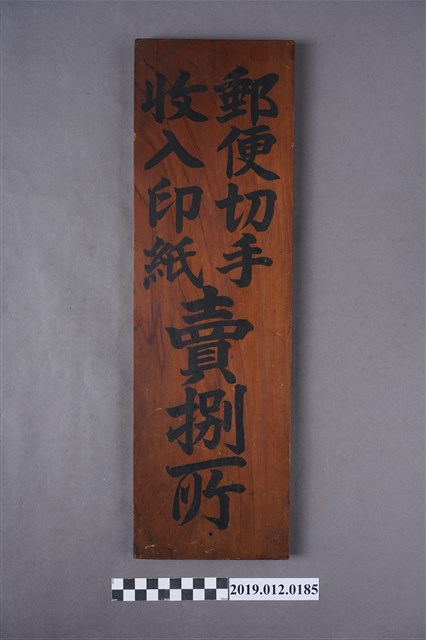 郵便切手
收入印紙
賣捌所
2019.012.0185